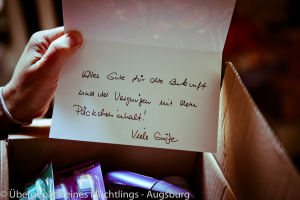 Alles Gute für die Zukunft
und viel Vergnügen mit dem
Päckcheninhalt!
Viele Grüße
© Übergepäck eines Nachtlings - Augsburg